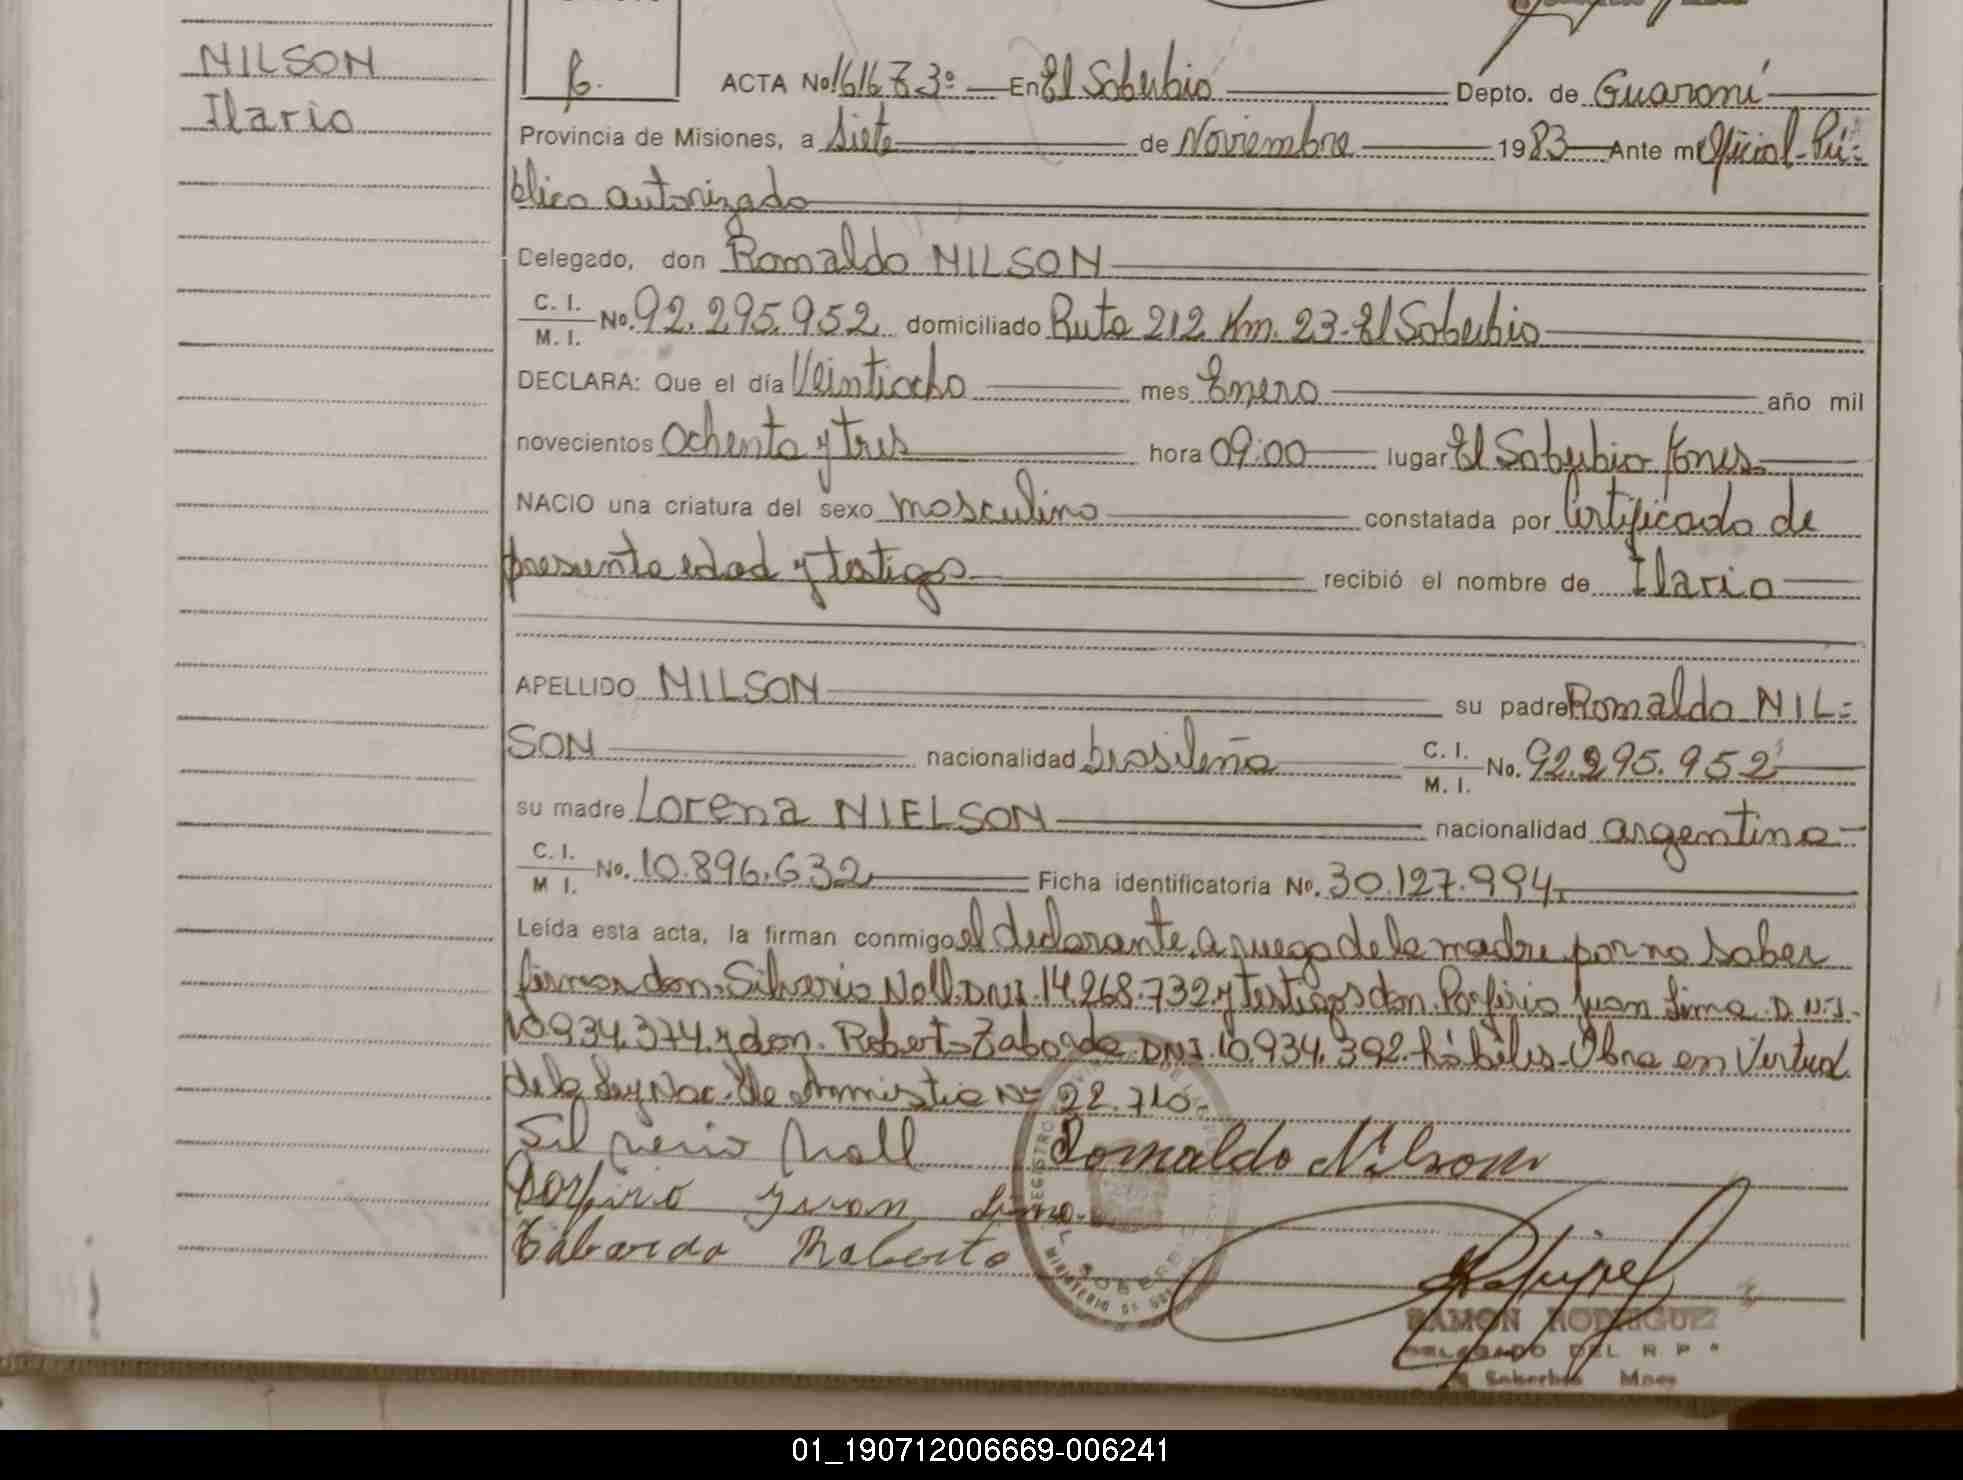 NILSON
Ilario
ACTA No 1616 T 3º En El Soberbio Depto. de Guaraní
Provincia de Misiones, a Siete de Noviembre 1983 Ante mi Oficial Pú-
blico autorizado
Delegado, don Romaldo NILSON
C. I.
M. I. No. 92.295.952 domiciliado Ruta 212 Km. 23-El Soberbio
DECLARA: Que el día Veintiocho mes Enero año mil
novecientos Ochenta y tres hora 09:00 lugar El Soberbio Mnes.
NACIO una criatura del sexo masculino constatada por Certificado de
presunta edad y testigos recibió el nombre de Ilario
APELLIDO NILSON su padre Romaldo NIL=
SON nacionalidad brasileña C. I.
M. I. No. 92.295.952
su madre Lorena NIELSON nacionalidad argentina
C. I.
M I. No. 10.896.632 Ficha identificatoria No. 30.127.994.
Leída esta acta, la firman conmigo el declarante, a ruego de la madre por no saber
firmar don. Silverio Noll. DNI. 14.268.732 y testigos don. Porfirio Juan Lima D.N.I.
10.934.374 y don. Roberto Zaborda DNI. 10.934.392. hábiles-Obra en Virtud
de la Ley Nac. de Amnistia Nº 22.710.
Silverio Noll Romaldo Nilson
Porfirio Juan Lima
Roberto
REGISTRO
MINISTERIO DE
RAMON RODRIGUEZ
DELEGADO DEL R. P.
Soberbio Mnes
01_190712006669-006241